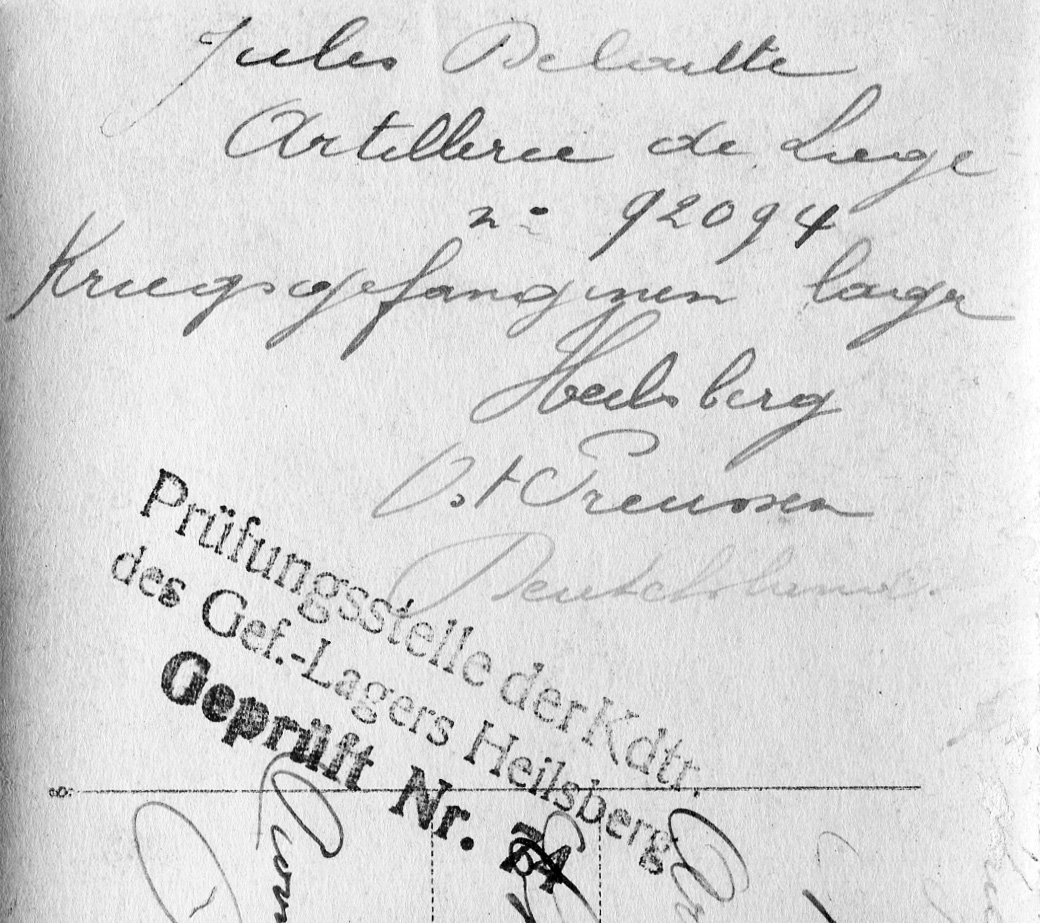 Jules Deloutte
Artillerie de Liege
n° 92094
Kriegsgefangenen lager
Heilsberg
Ost Preussen
Deutschland.
Prüfungsstelle der Kdtr.
des Gef.-Lagers Heilsberg
Geprüft Nr.